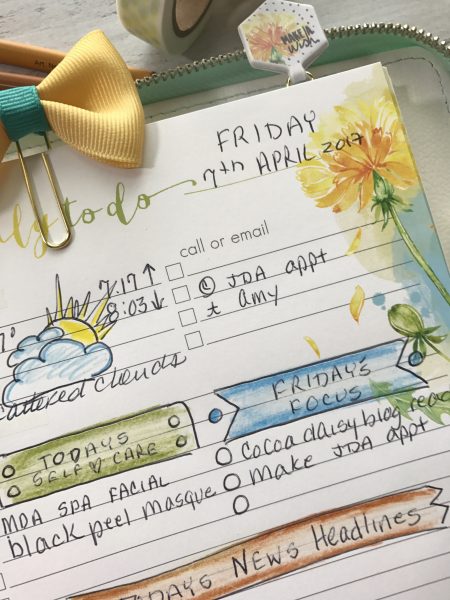 MAKE A WISH
FRIDAY
7th APRIL 2017
to do
call or email
7:17 ↑
8:03 ↓
JDA appt
t amy
clouds
FRIDAY'S
FOCUS
TODAYS
SELF ♡ CARE
cocoa daisy blog
make JDA appt
MDA SPA FACIAL
black peel masque
NEWS Headlines